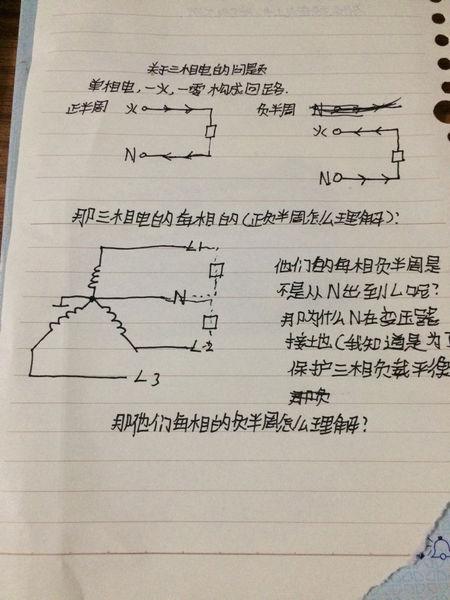 关于三相电的问题
单相电，一火，一零构成回路.
正半周 火
N
负半周
火
N
那三相电的每相的(正负半周怎么理解)：
L1
N
L2
L3
他们的每相负半周是
不是从N出到L呢？
那为什么N在变压器
接地(我知道是为了
保护三相负载平衡
那他们每相的负半周怎么理解？